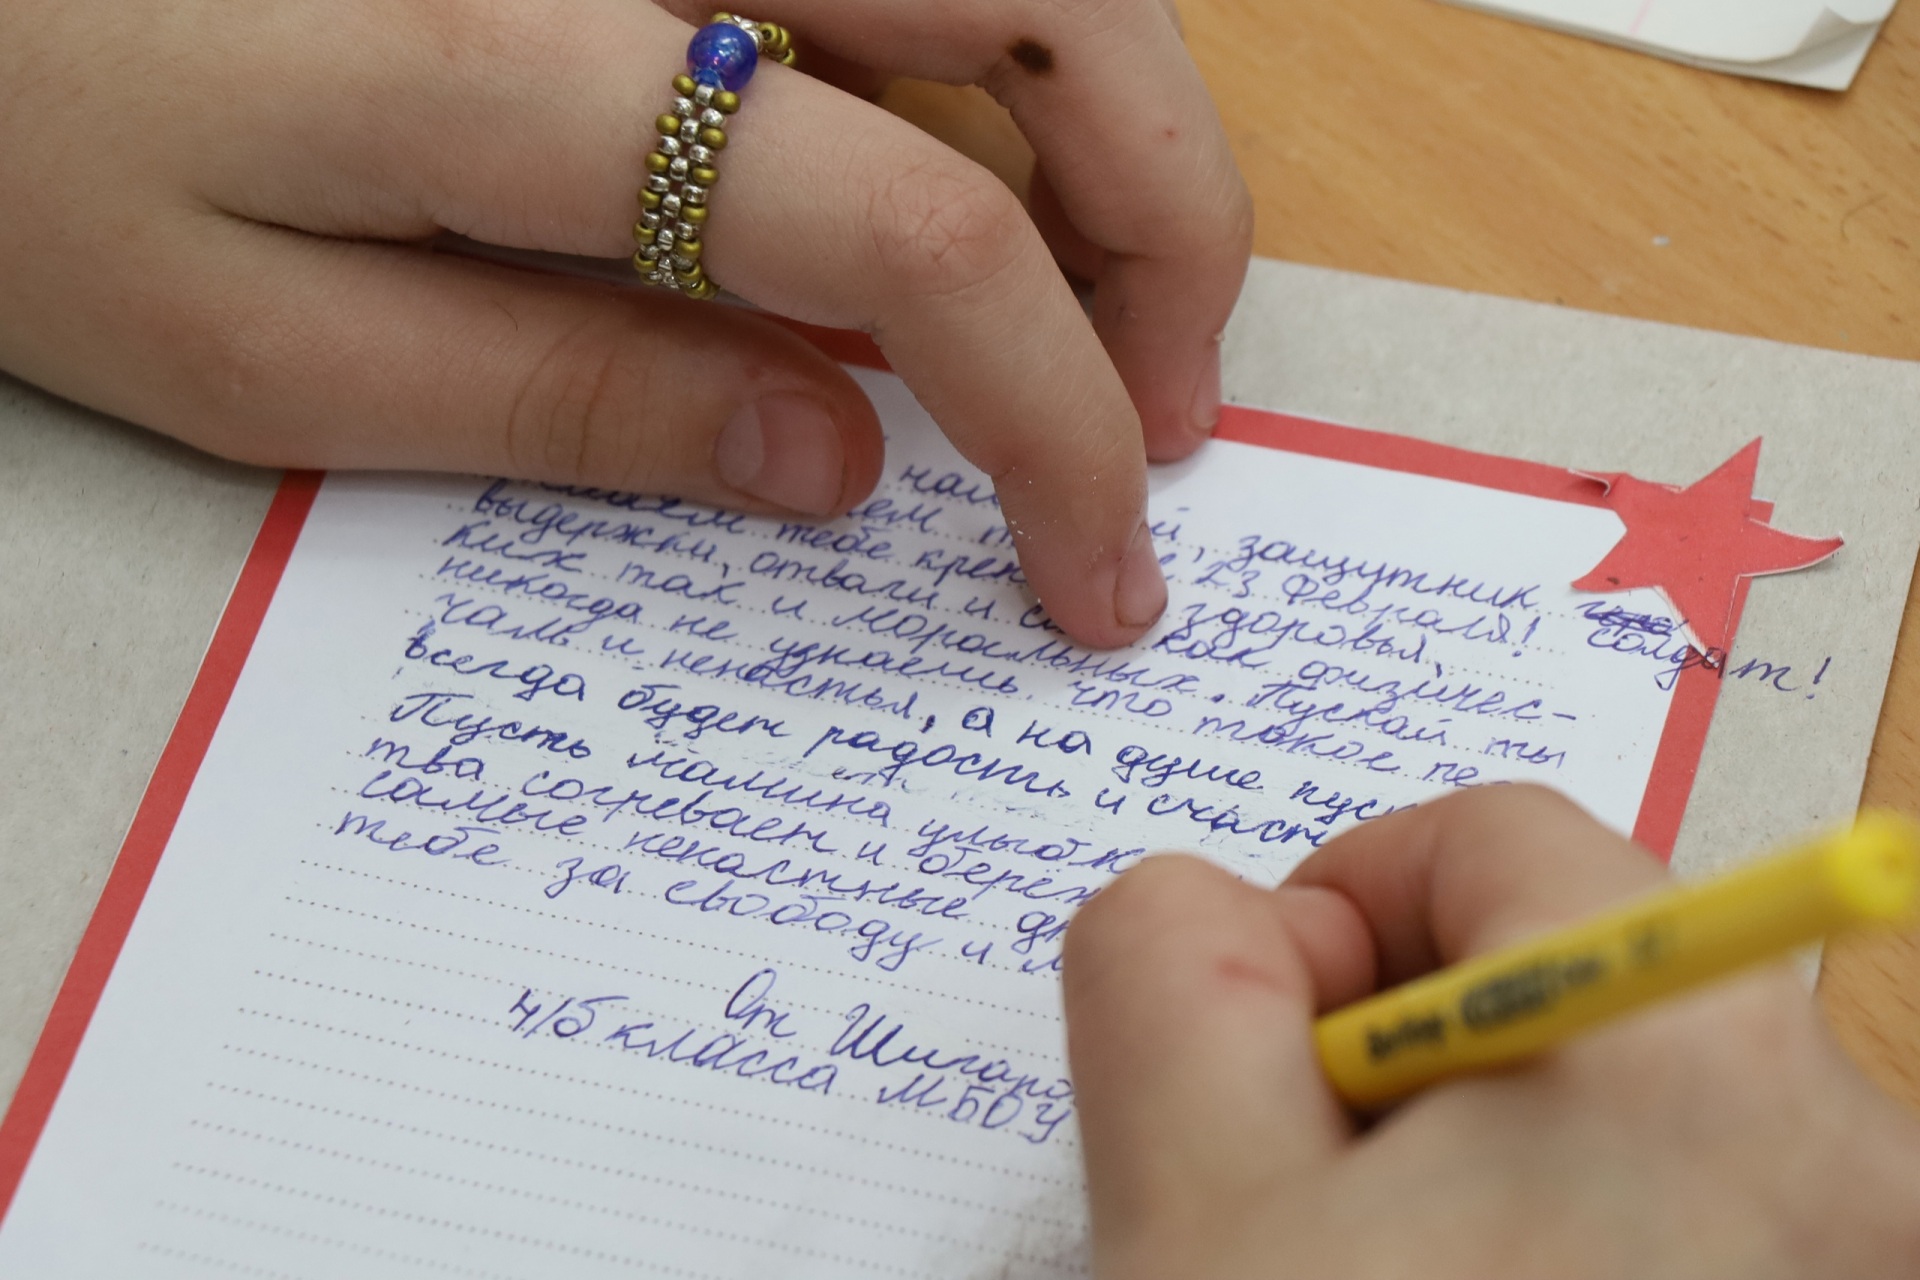 наш й, защитник солдат!
23 Февраля!
тебе креп здоровья,
выдержки, отваги и с как физичес-
ких так и моральных. Пускай ты
никогда не узнаешь что такое пе
чаль и ненастья, а на душе пус
всегда будет радость и счаст
Пусть мамина улыбк
тва согревает и береж
самые ненастные дн
тебе за свободу и м
От Шигаро
4/б класса МБОУ